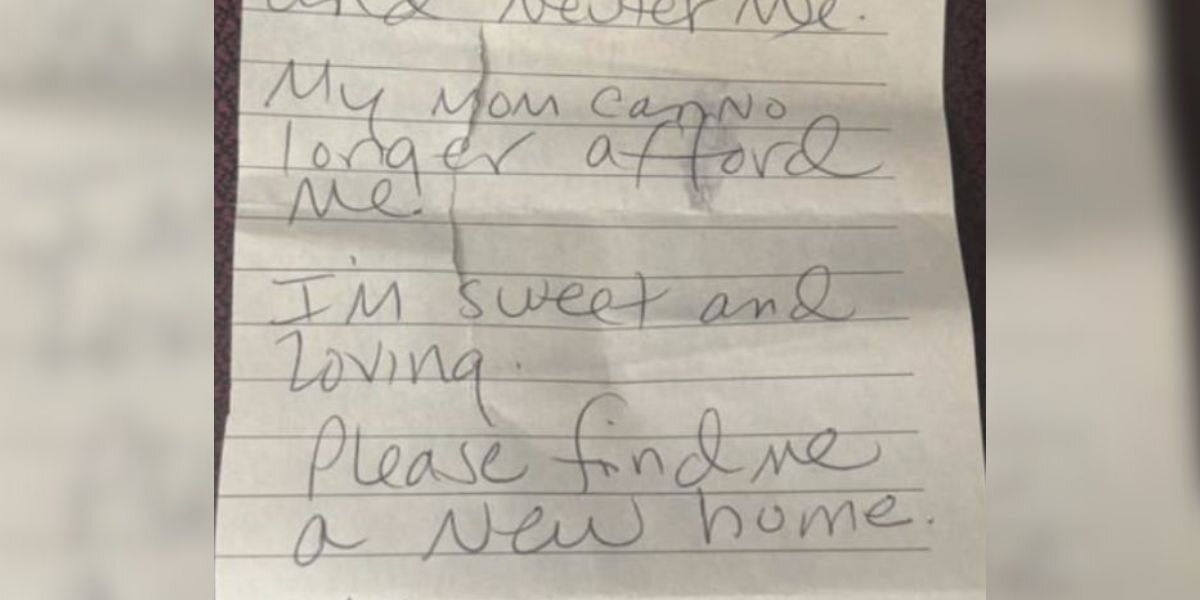 and Neuter Me.
My Mom can No
longer afford
Me!
I'M sweet and
Loving.
Please find me
a New home.